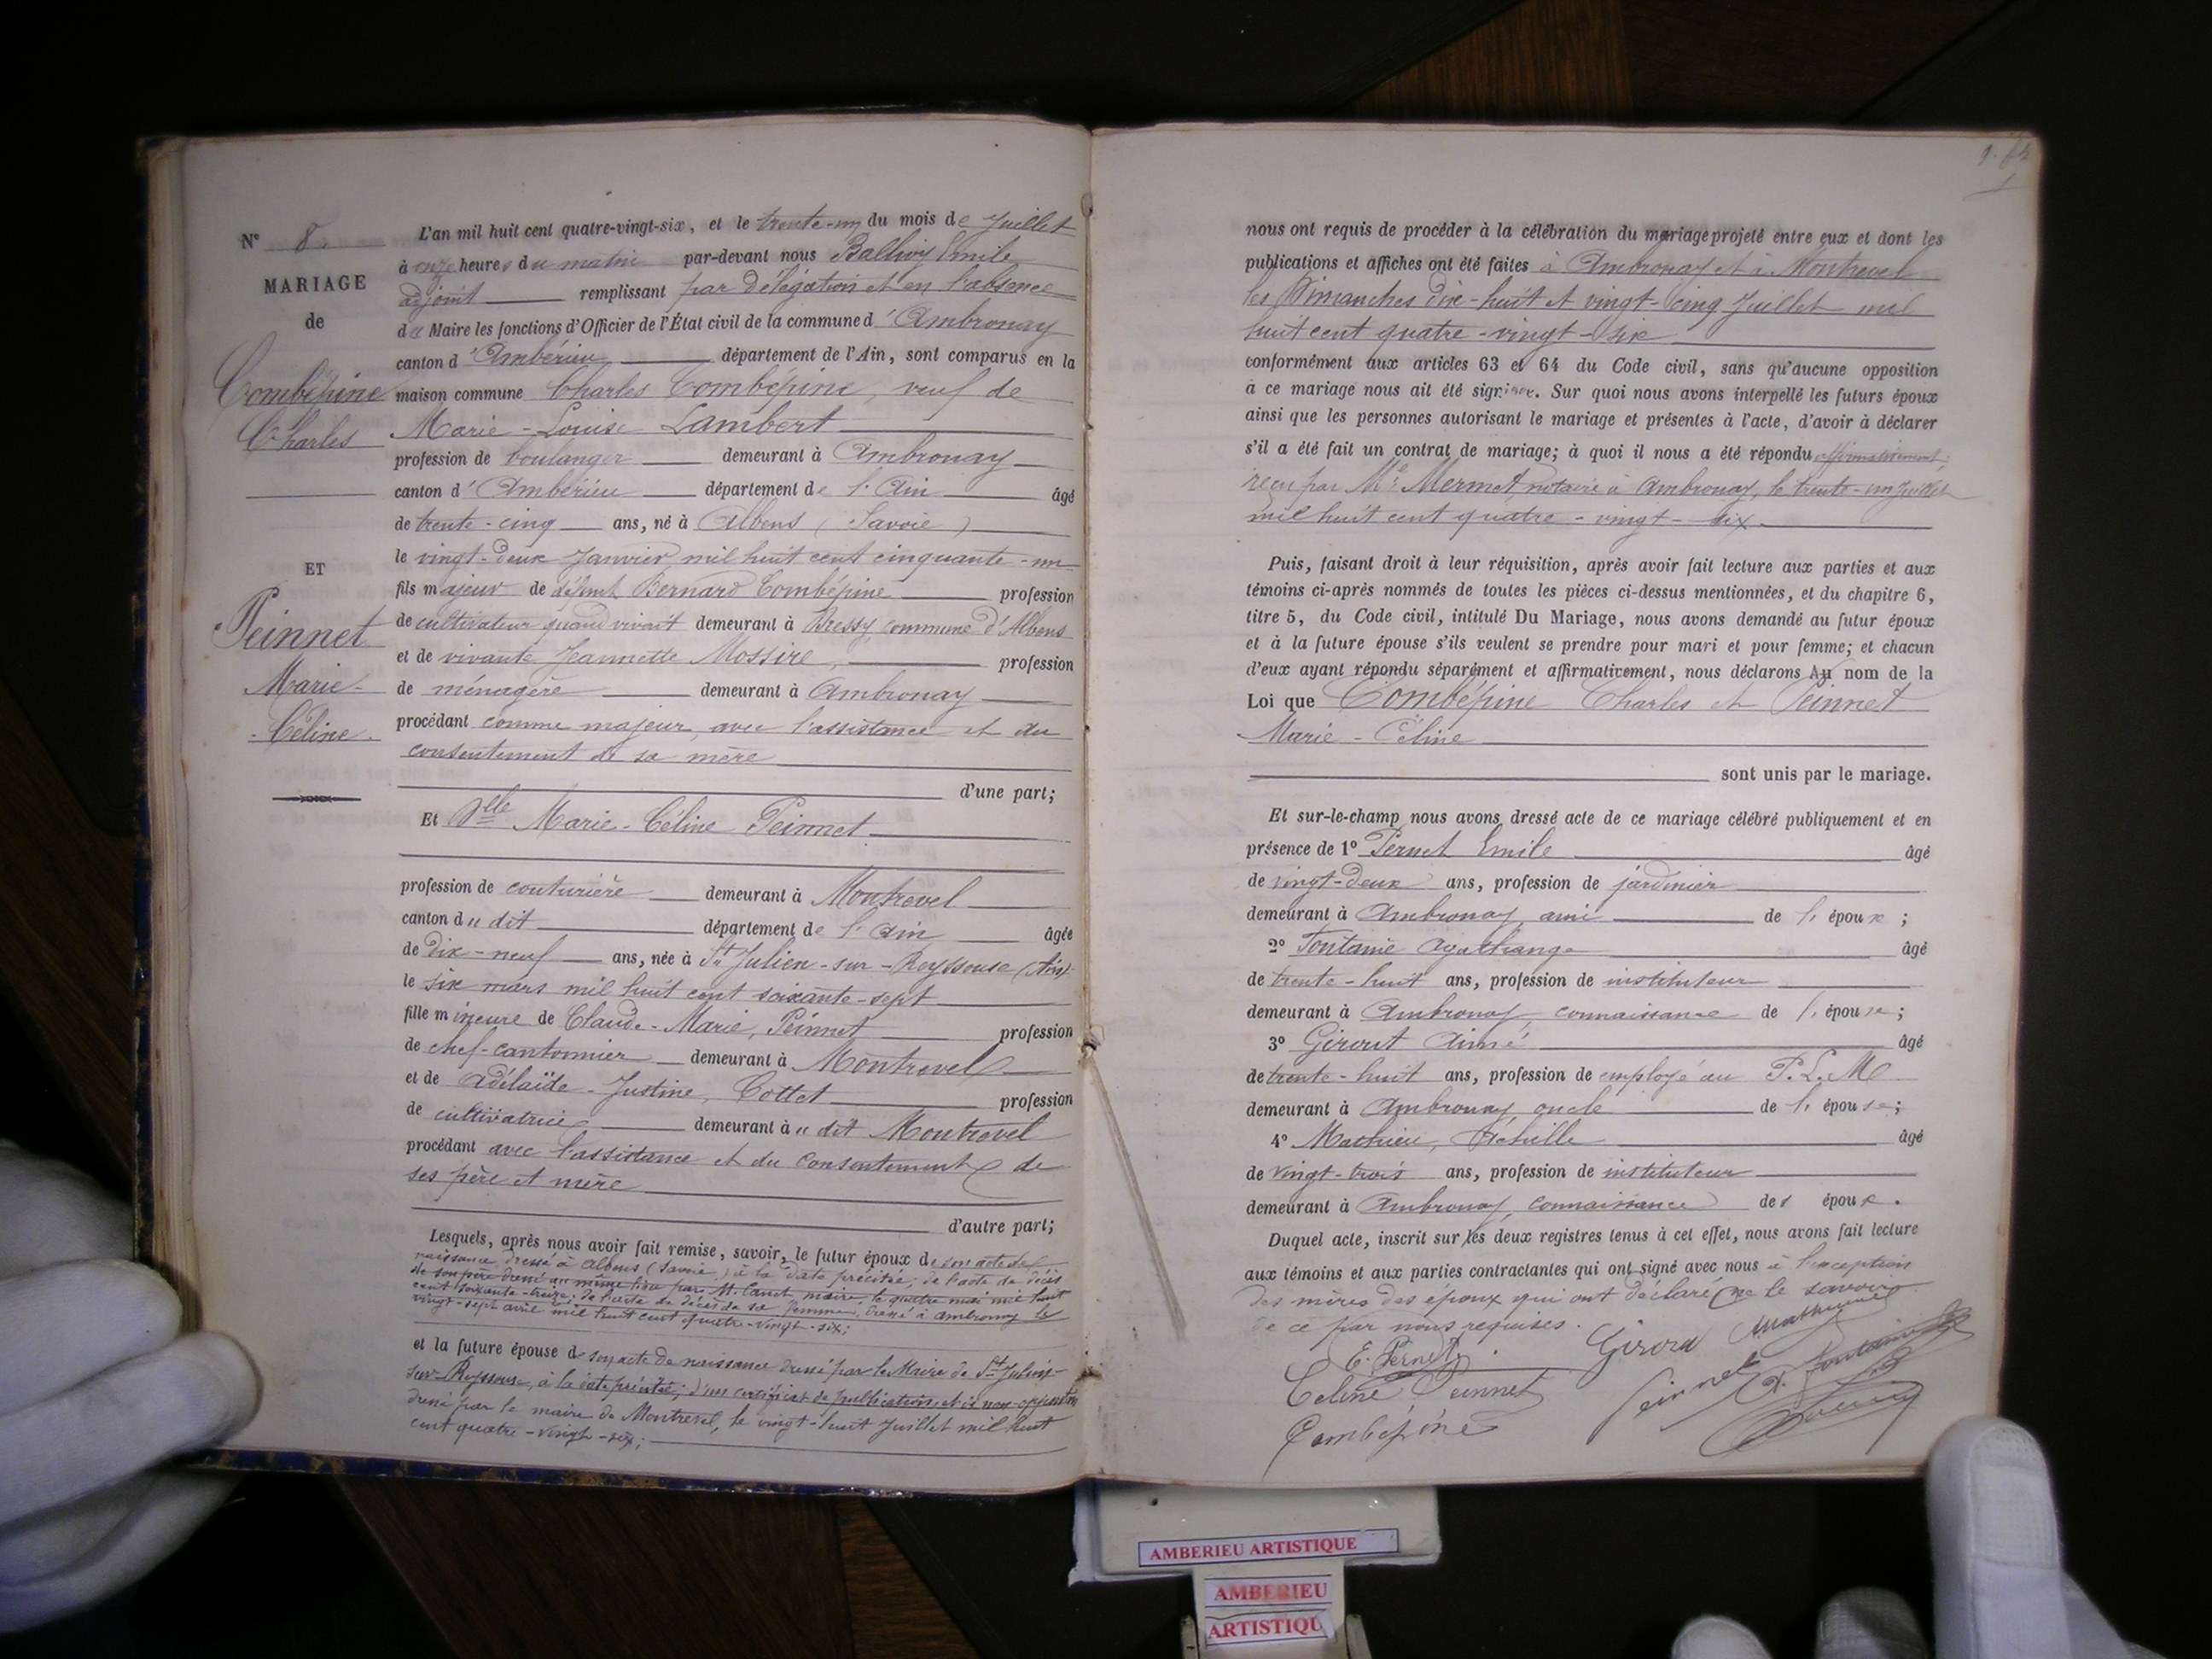 N° 8.
MARIAGE
de
Combépine
Charles
ET
Peinnet
Marie-
Céline.
L'an mil huit cent quatre-vingt-six, et le trente-un du mois de Juillet
à onze heures du matin par-devant nous Ballivy Emile
adjoint remplissant par délégation et en l'absence
du Maire les fonctions d'Officier de l'État civil de la commune d'Ambronay
canton d'Ambérieu département de l'Ain, sont comparus en la
maison commune Charles Combépine, veuf de
Marie-Louise Lambert
profession de boulanger demeurant à Ambronay
canton d'Ambérieu département de l'Ain âgé
de trente-cinq ans, né à Albens (Savoie)
le vingt-deux Janvier mil huit cent cinquante-un
fils majeur de défunt Bernard Combépine profession
de cultivateur quand vivait demeurant à Bressy commune d'Albens
et de vivante Jeannette Mossire, profession
de ménagère demeurant à Ambronay
procédant comme majeur, avec l'assistance et du
consentement de sa mère
d'une part;
Et Delle Marie-Céline Peinnet
profession de couturière demeurant à Montrevel
canton du dit département de l'Ain âgée
de dix-neuf ans, née à St Julien-sur-Reyssouse (Ain)
le six mars mil huit cent soixante-sept
fille mineure de Claude-Marie, Peinnet profession
de chef-cantonnier demeurant à Montrevel
et de Adélaïde-Justine, Cottet profession
de cultivatrice demeurant au dit Montrevel
procédant avec l'assistance et du consentement de
ses père et mère
d'autre part;
Lesquels, après nous avoir fait remise, savoir, le futur époux de son acte de
naissance dressé à Albens (Savoie) à la date précitée; de l'acte de décès
de son père dressé au même lieu par M. Canet maire, le quatre mai mil huit
cent soixante-treize; de l'acte de décès de sa femme, dressé à Ambronay le
vingt-sept avril mil huit cent quatre-vingt-six;
et la future épouse de son acte de naissance dressé par le Maire de St Julien-
sur-Reyssouse, à la date précitée; d'un certificat de publication et de non-opposition
dressé par le maire de Montrevel, le vingt-huit Juillet mil huit
cent quatre-vingt-six;
nous ont requis de procéder à la célébration du mariage projeté entre eux et dont les
publications et affiches ont été faites à Ambronay et à Montrevel
les Dimanches dix-huit et vingt-cinq Juillet mil
huit cent quatre-vingt-six
conformément aux articles 63 et 64 du Code civil, sans qu'aucune opposition
à ce mariage nous ait été signifiée. Sur quoi nous avons interpellé les futurs époux
ainsi que les personnes autorisant le mariage et présentes à l'acte, d'avoir à déclarer
s'il a été fait un contrat de mariage; à quoi il nous a été répondu affirmativement,
reçu par Me Mermet notaire à Ambronay, le trente-un Juillet
mil huit cent quatre-vingt-six
Puis, faisant droit à leur réquisition, après avoir fait lecture aux parties et aux
témoins ci-après nommés de toutes les pièces ci-dessus mentionnées, et du chapitre 6,
titre 5, du Code civil, intitulé Du Mariage, nous avons demandé au futur époux
et à la future épouse s'ils veulent se prendre pour mari et pour femme; et chacun
d'eux ayant répondu séparément et affirmativement, nous déclarons Au nom de la
Loi que Combépine Charles et Peinnet
Marie-Céline
sont unis par le mariage.
Et sur-le-champ nous avons dressé acte de ce mariage célébré publiquement et en
présence de 1° Pernet Emile âgé
de vingt-deux ans, profession de jardinier
demeurant à Ambronay, ami de l'époux;
2° Fontaine Agathange âgé
de trente-huit ans, profession de instituteur
demeurant à Ambronay, connaissance de l'époux;
3° Girout Aimé âgé
de trente-huit ans, profession de employé au P.L.M
demeurant à Ambronay, oncle de l'épouse;
4° Mathieu, Achille âgé
de vingt-trois ans, profession de instituteur
demeurant à Ambronay, connaissance des époux.
Duquel acte, inscrit sur les deux registres tenus à cet effet, nous avons fait lecture
aux témoins et aux parties contractantes qui ont signé avec nous à l'exception
des mères des époux qui ont déclaré ne le savoir
de ce par nous requises.
E. Pernet Girout Mathieu
Celine Peinnet Peinnet A. Fontaine
Combépine
AMBERIEU ARTISTIQUE
AMBERIEU
ARTISTIQU